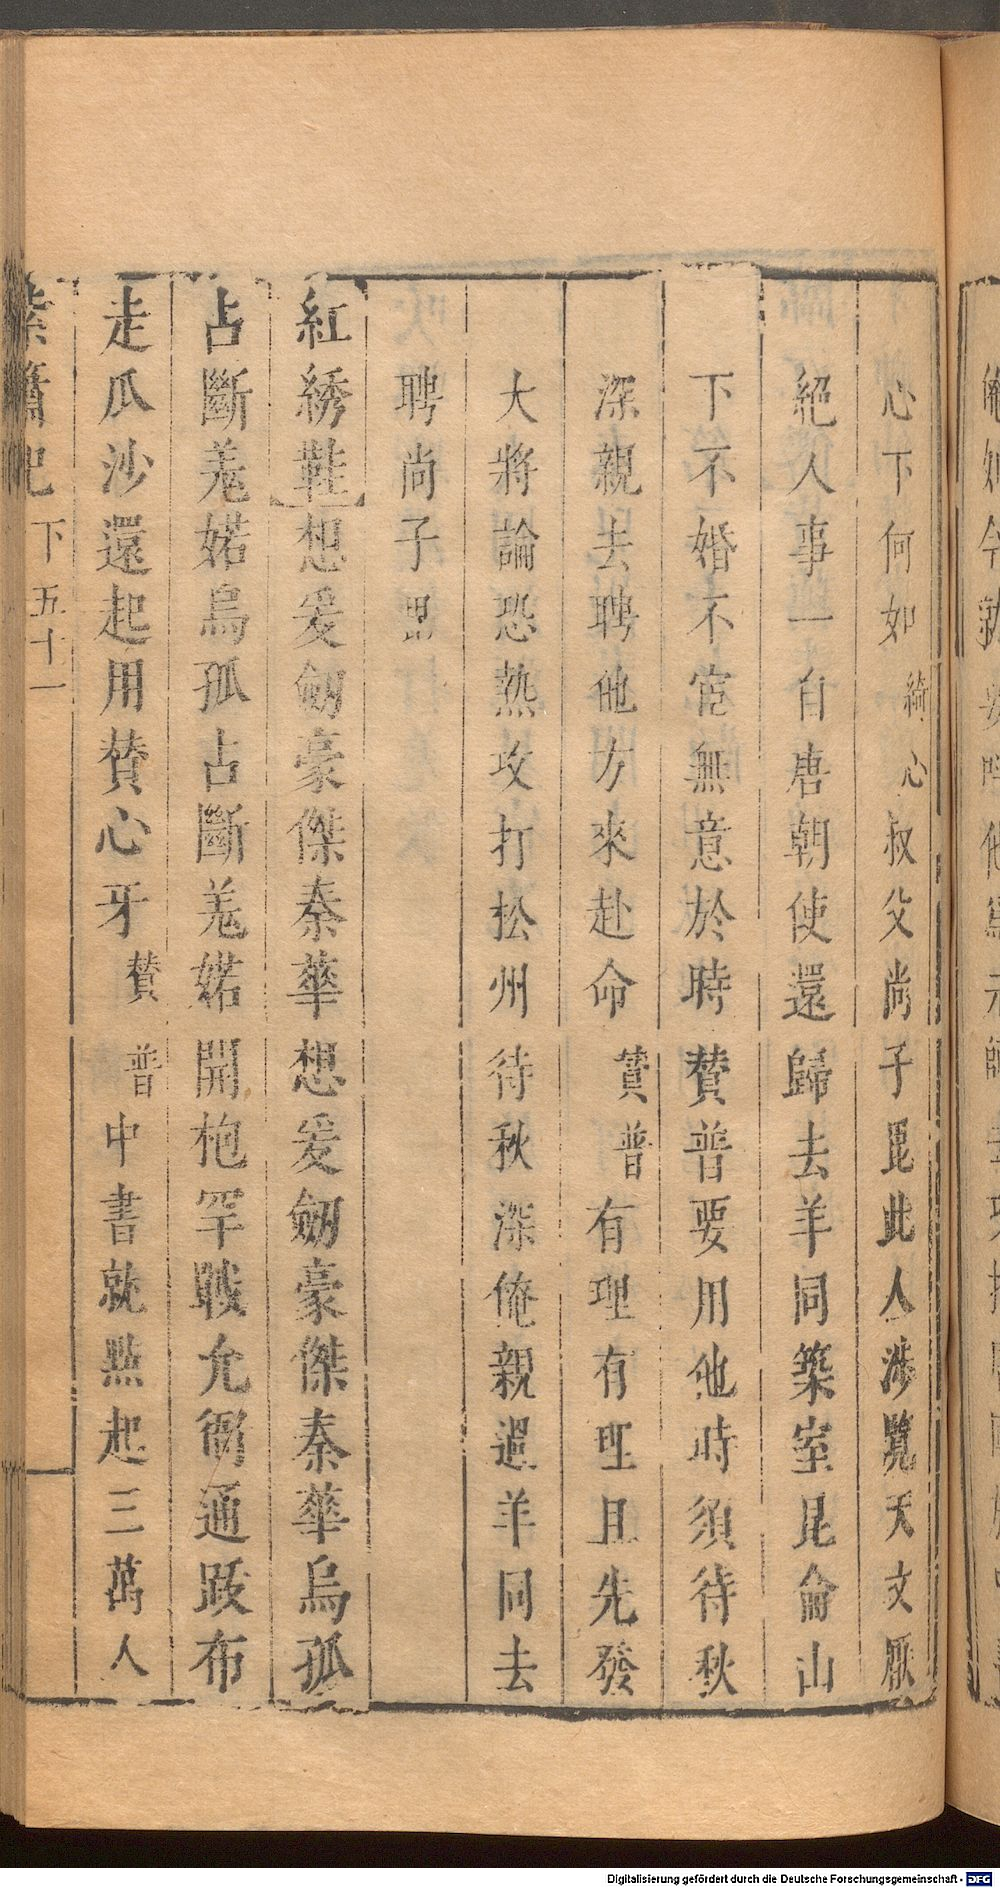 心下何如綺心叔父尚子毘此人涉覽天文厭
絕人事一自唐朝使還歸去羊同築室昆侖山
下不婚不宦無意於時贊普要用他時須待秋
深親去聘他方來赴命贊普有理有理且先發
大將論恐熱攻打松州待秋深俺親過羊同去
聘尚子毘
紅綉鞋想爰劒豪傑秦華想爰劒豪傑秦華烏孤
占斷羗婼烏孤占斷羗婼開枹罕戰允衙通跋布
走瓜沙還起用贊心牙贊普中書就點起三萬人
紫簫記 下 五十一
Digitalisierung gefördert durch die Deutsche Forschungsgemeinschaft - DFG